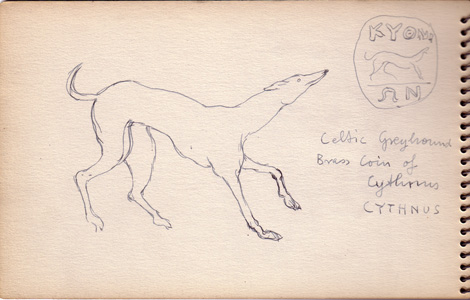 ΚΥΘΝΙ
ΩΝ
Celtic Greyhound
Brass Coin of
Cythnus
CYTHNUS